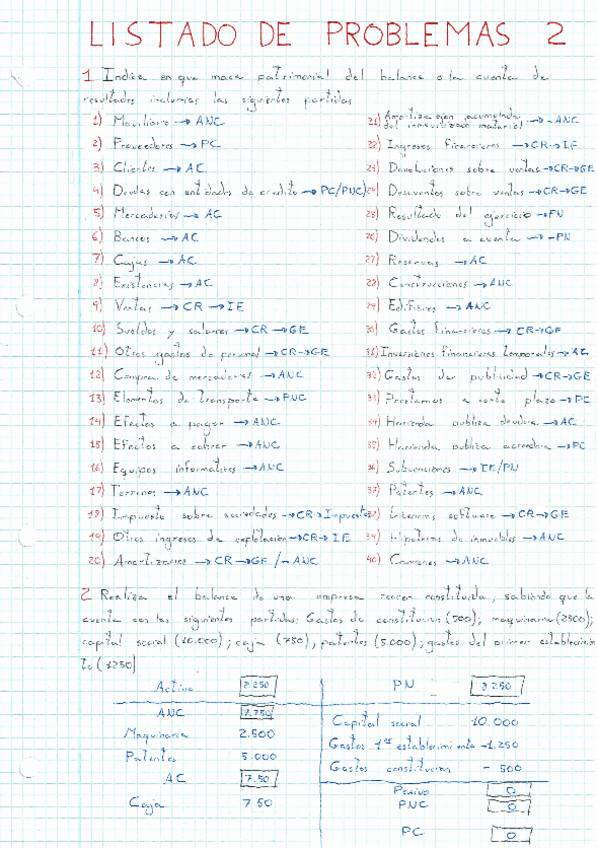 LISTADO DE PROBLEMAS 2
1 Indica en que masa patrimonial del balance o la cuenta de
resultados incluirias las siguientes partidas
1) Moviliario → ANC
2) Proveedores → PC
3) Clientes → AC
4) Deudas con entidades de credito → PC/PNC
5) Mercaderias → AC
6) Bancos → AC
7) Cajas → AC
8) Existencias → AC
9) Ventas → CR → IE
10) Sueldos y salarios → CR → GE
11) Otros gastos de personal → CR → GE
12) Compra de mercaderias → ANC
13) Elementos de transporte → ANC
14) Efectos a pagar → ANC
15) Efectos a cobrar → ANC
16) Equipos informaticos → ANC
17) Terrenos → ANC
18) Impuesto sobre sociedades → CR → Impuestos
19) Otros ingresos de explotación → CR → IE
20) Amortizacion → CR → GE / - ANC
21) Amortizacion acumulada
del inmovilizado material → - ANC
22) Ingresos financieros → CR → IF
23) Devoluciones sobre ventas → CR → GE
24) Descuentos sobre ventas → CR → GE
25) Resultado del ejercicio → PN
26) Dividendos a cuenta → - PN
27) Reservas → AC
28) Construcciones → ANC
29) Edificios → ANC
30) Gastos financieros → CR → GF
31) Inversiones financieras temporales → AC
32) Gastos de publicidad → CR → GE
33) Prestamos a corto plazo → PC
34) Hacienda publica deudora → AC
35) Hacienda publica acreedora → PC
36) Subvenciones → IE/PN
37) Patentes → ANC
38) Licencias software → CR → GE
39) Hipotecas de inmuebles → ANC
40) Camiones → ANC
2 Realiza el balance de una empresa recien constituida, sabiendo que la
cuenta con las siguientes partidas: Gastos de constitucion (500); maquinaria (2500);
capital social (10.000); caja (750), patentes (5.000); gastos del primer establecimien
to (1250)
Activo 8.250 PN 8.250
ANC 7.750
Capital social 10.000
Maquinaria 2.500
Gastos 1er establecimiento -1.250
Patentes 5.000
Gastos constitucion - 500
AC 7.50
Pasivo 0
Caja 7 50
PNC 0
PC 0